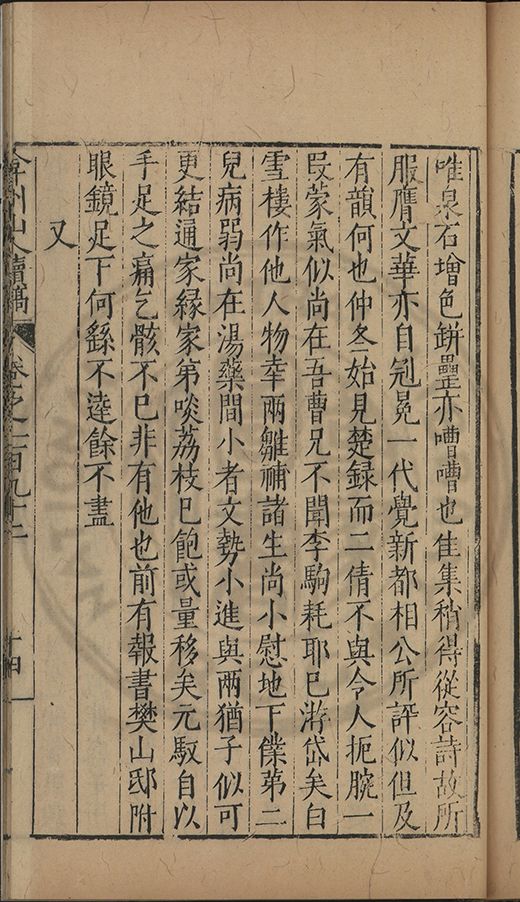 唯泉石增色缾罍亦嘈嘈也隹集稍得從容詩故所
服膺文華亦自冠冕一代覺新都相公所評似但及
有韻何也仲冬始見楚録而二倩不與令人扼腕一
段蒙氣似尚在吾曹兄不聞李駒耗耶巳游岱矣白
雪樓作他人物幸兩雛補諸生尚小慰地下僕第二
兒病弱尚在湯藥間小者文勢小進與兩猶子似可
更結通家緣家第啖荔枝巳飽或量移矣元馭自以
手足之痛乞骸不巳非有他也前有報書樊山邸附
眼鏡足下何繇不達餘不盡
又
弇州山人續稿
卷之一百九十二
十四